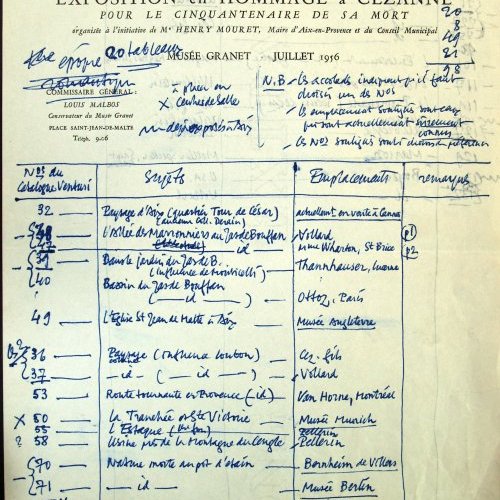 EXPOSITION en HOMMAGE à CÉZANNE
POUR LE CINQUANTENAIRE DE SA MORT
organisée à l'initiative de Me HENRY MOURET, Maire d'Aix-en-Provence et du Conseil Municipal
MUSÉE GRANET JUILLET 1956
20
8
49
21
98
1ère époque 20 tableaux
romantique
COMMISSAIRE GÉNÉRAL :
LOUIS MALBOS
Conservateur du Musée Granet
PLACE SAINT-JEAN-DE-MALTE
Téléph. 9-06
X Centres de Salle
N.B - les accolades indiquent qu'il faut
choisir un des Nos
les emplacements soulignés sont ceux
qui sont actuellement sûrement
connus
les Nos soulignés sont
Nos du
Catalogue Venturi
Sujets
Emplacements
remarques
32 Paysage d'Aix (quartier Tour de César) actuellement en vente à Cannes
L'Allée des Marronniers au Jas de Bouffan Vollard p1
47 id Wharton, St Brice p2
39 Dans le jardin du Jas de B. Thannhauser, Lucerne
(influence de Monticelli)
40 Bassin du Jas de Bouffan
( id ) Ottoz, Paris
49 L'Eglise St Jean de Malte à Aix Musée Angleterre
36 Paysage (influence Loubon) Cez. fils
37 - id - ( id ) Vollard
53 Route tournante en Provence (- id -) Van Horne, Montréal
X 50 La Tranchée et Ste Victoire Musée Munich
55 L'Estaque Pellerin
? 58 Usine près de la Montagne du Cengle Pellerin
70 Nature morte au pot d'étain Bernheim de Villers
71 - id - Musée Berlin